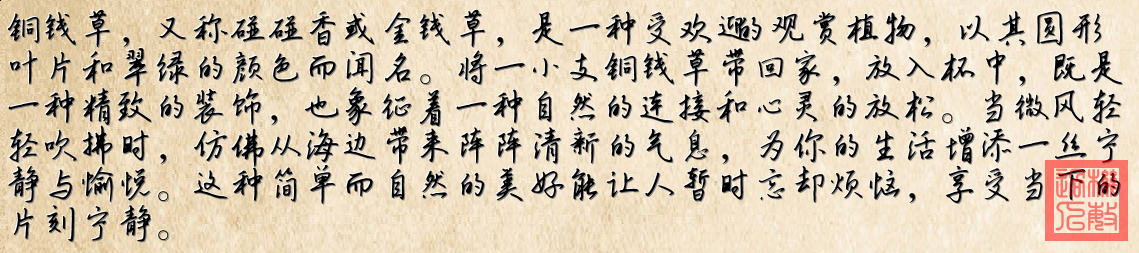 铜钱草，又称碰碰香或金钱草，是一种受欢迎的观赏植物，以其圆形
叶片和翠绿的颜色而闻名。将一小支铜钱草带回家，放入杯中，既是
一种精致的装饰，也象征着一种自然的连接和心灵的放松。当微风轻
轻吹拂时，仿佛从海边带来阵阵清新的气息，为你的生活增添一丝宁
静与愉悦。这种简单而自然的美好能让人暂时忘却烦恼，享受当下的
片刻宁静。